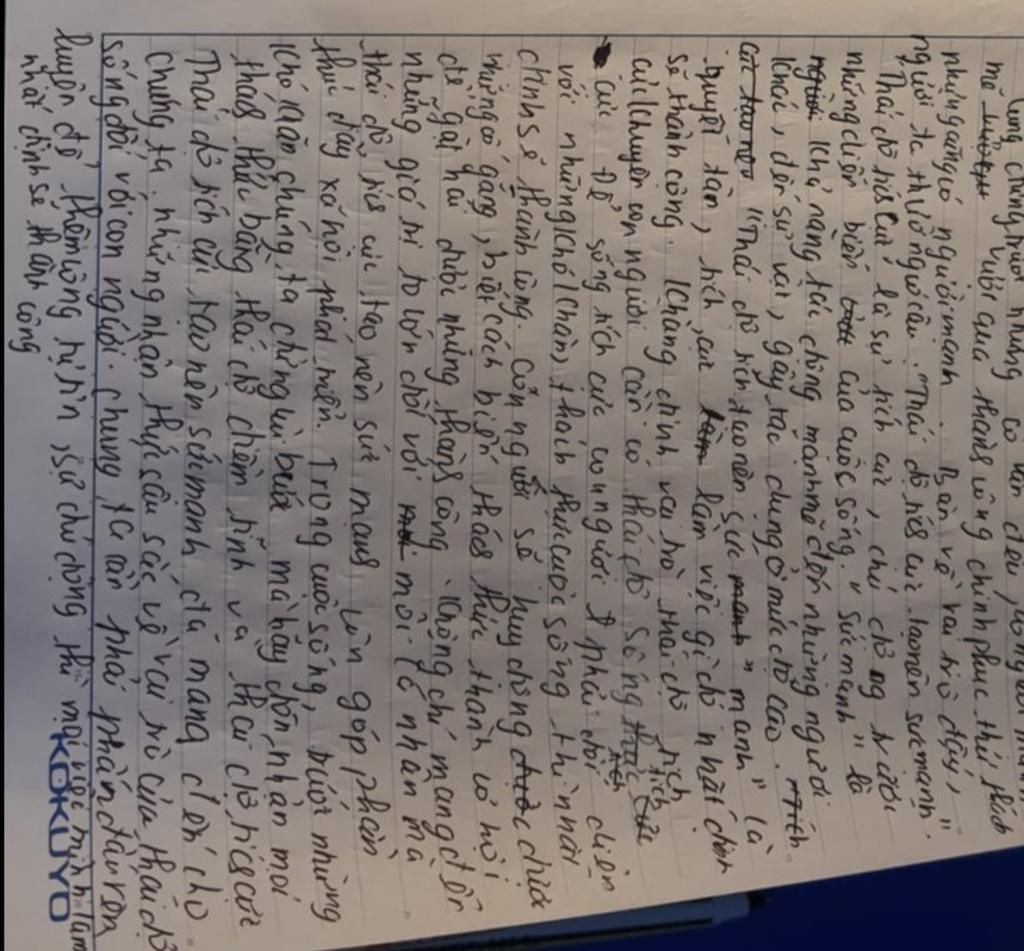 trong chúng nhưng có vấn đều, con người
mẽ vượt qua thành công chinh phục thử thách
nhưng cũng có người mạnh. Bàn về vai trò đấy,
người ta thường nói câu. "Thái độ tích cực tao nên sưc manh".
Thái độ tích cưc là sự tích cực, chủ động trước
những diễn biến của cuộc sống. "Sức mạnh" là
Khả năng tác động mạnh mẽ đến những người
khác, đến sự vật, gây tác dụng ở mức độ cao.
"Thái độ tích tao nên sức manh" là
quyết tân, tích cực làm việc gì đó nhất định
sẽ thành công. Khẳng định vai trò thái độ tích
cực khuyên con người cần có thái độ sống tích
cưc. Để sống tích cưc con người phải đối diện
với những khó khăn, thách thức cuộc sống thì nới
chính sẽ thành công. Con người sẽ huy động được
những cố gắng, biết cách biến thách thức thành cơ hội
để gặt hái được những thành công. Không chỉ mang đến
những giá trị to lớn đối với mỗi cá nhân mà
thái độ tích cưc tao nên sức mạnh còn góp phần
thúc đẩy xã hội phát triển. Trong cuôc sống, trước những
Khó khăn chúng ta đừng lùi bước mà hãy đón nhận mọi
thách thức bằng thái độ chiên tĩnh và thái độ tích cưc
Thái độ tích cưc tao nên sức manh đã mang đến cho
Chúng ta những nhân thức sâu sắc về vai trò của thái độ
sống đối với con người. Chúng ta cần phải phấn đấu rèn
luyện để thêm lòng tự tin, sự chủ động thì mọi việc mình làm
nhất định sẽ thành công
KOKUYO